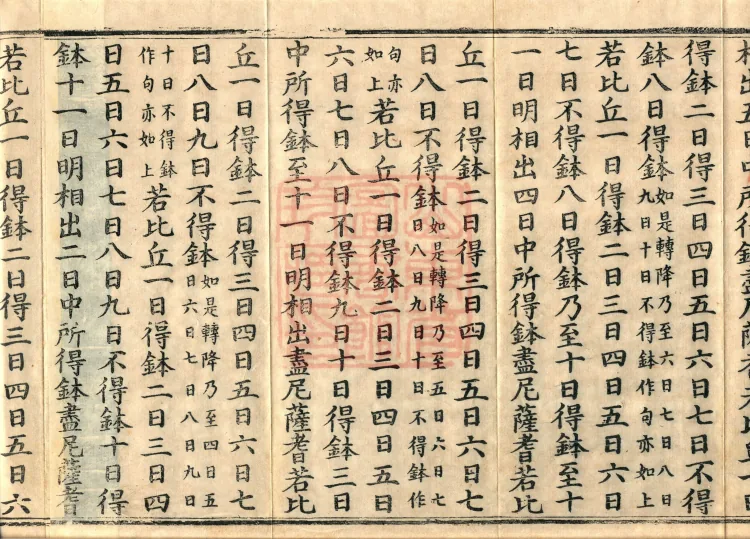 相出五日中所得鉢盡尼薩耆若比丘一日
得鉢二日得三日四日五日六日七日不得
鉢八日得鉢如是轉降乃至六日七日八日九日十日不得鉢作句亦如上
若比丘一日得鉢二日三日四日五日六日
七日不得鉢八日得鉢乃至十日得鉢至十
一日明相出四日中所得鉢盡尼薩耆若比
丘一日得鉢二日得三日四日五日六日七
日八日不得鉢如是轉降乃至五日六日七日八日九日十日不得鉢作
句亦如上若比丘一日得鉢二日三日四日五日
六日七日八日不得鉢九日十日得鉢三日
中所得鉢至十一日明相出盡尼薩耆若比
丘一日得鉢二日得三日四日五日六日七
日八日九日不得鉢如是轉降乃至四日五日六日七日八日九日
十日不得鉢作句亦如上若比丘一日得鉢二日三日四
日五日六日七日八日九日不得鉢十日得
鉢十一日明相出二日中所得鉢盡尼薩耆
若比丘一日得鉢二日得三日四日五日六